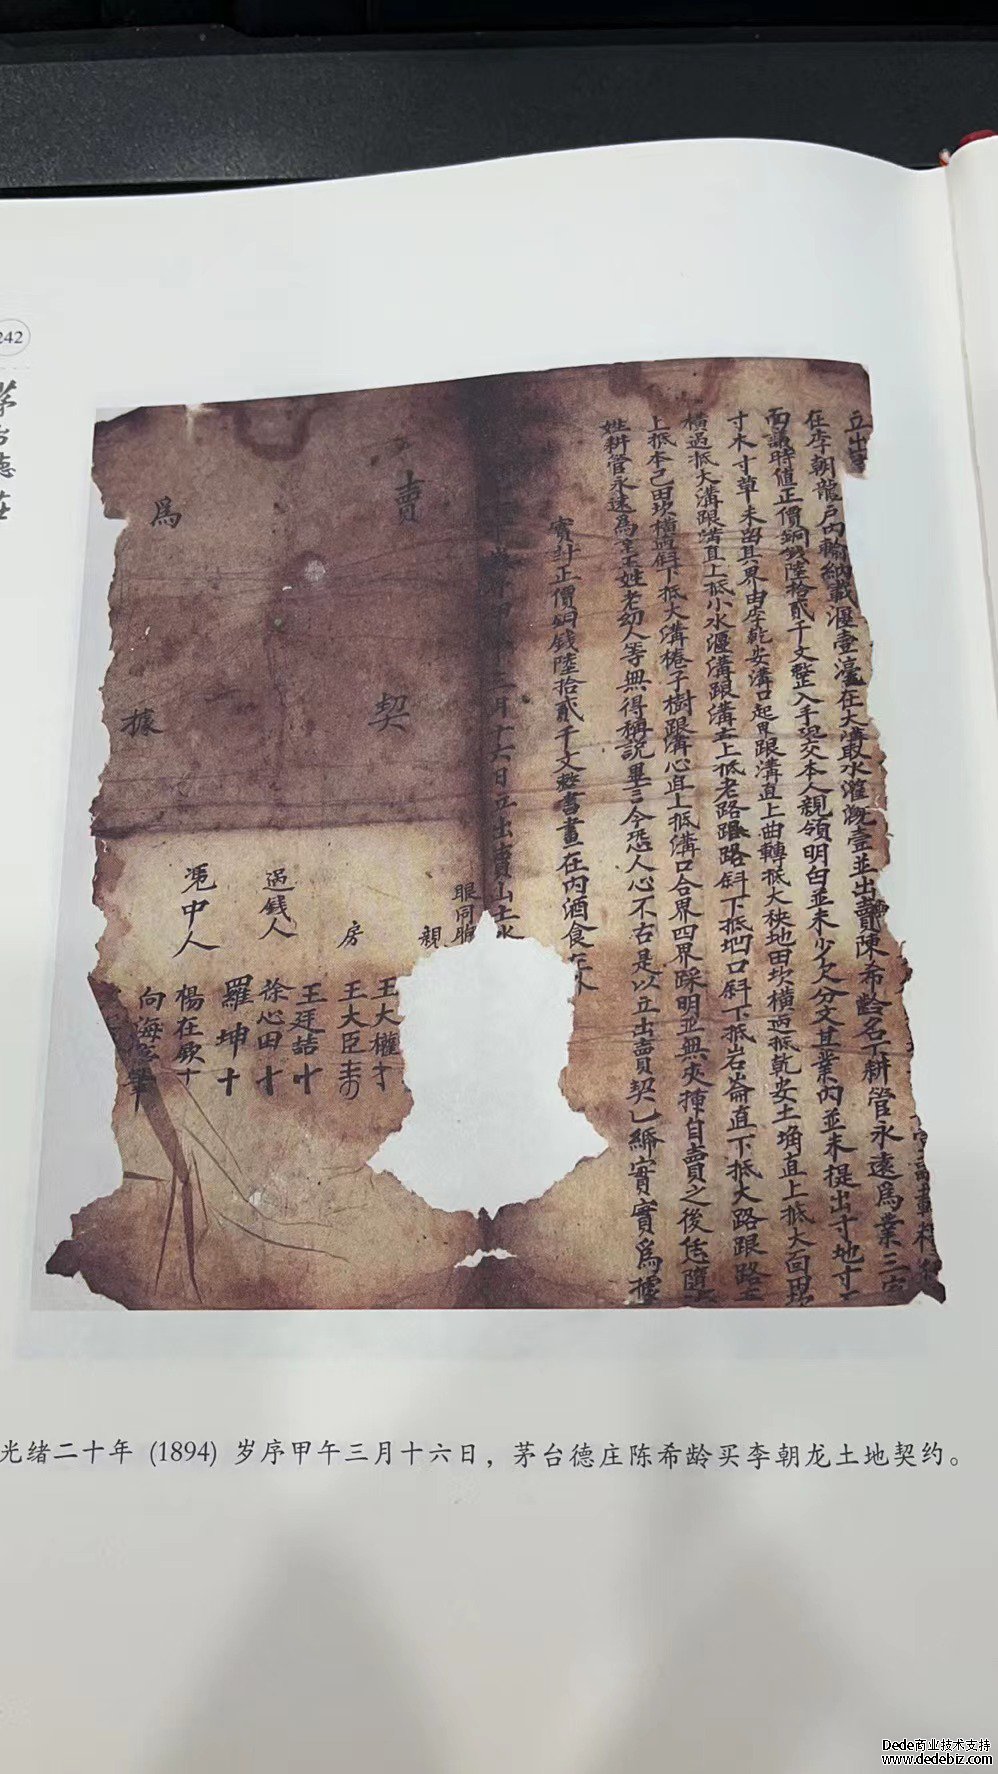 242
茅台德庄
立出賣
在李朝龍戶內輸納載糧壹毫在大溝取水灌溉壹並出賣陳希齡名下耕管永遠爲業三家
面議時值正價銅錢陸拾貳千文整入手現交本人親領明白並未少欠分文其業內並未提出寸地寸土
寸木寸草未留其界由李乾安溝口起界跟溝直上曲轉抵大秧地田坎橫過抵乾安土角直上抵大面田坎
橫過抵大溝跟溝直上抵小水溝跟溝上抵老路跟路斜下抵凼口斜下抵岩崙直下抵大路跟路
上抵本己田坎橫過斜下抵大溝棬子樹跟溝心直上抵溝口合界四界踩明並無夾插自賣之後恁隨
姓耕管永遠爲業王姓老幼人等無得稱說異言今恐人心不古是以立出賣契乙紙實實爲據
實計正價銅錢陸拾貳千文整書畫在內酒食在外
三月十六日立出賣山土
賣契
爲據
眼同
親
房
過錢人
憑中人
王大權
王大臣
王廷喆十
徐心田十
羅坤十
楊在欽十
向海
光绪二十年 (1894) 岁序甲午三月十六日，茅台德庄陈希龄买李朝龙土地契约。
Dede商业技术支持
www.dedebiz.com